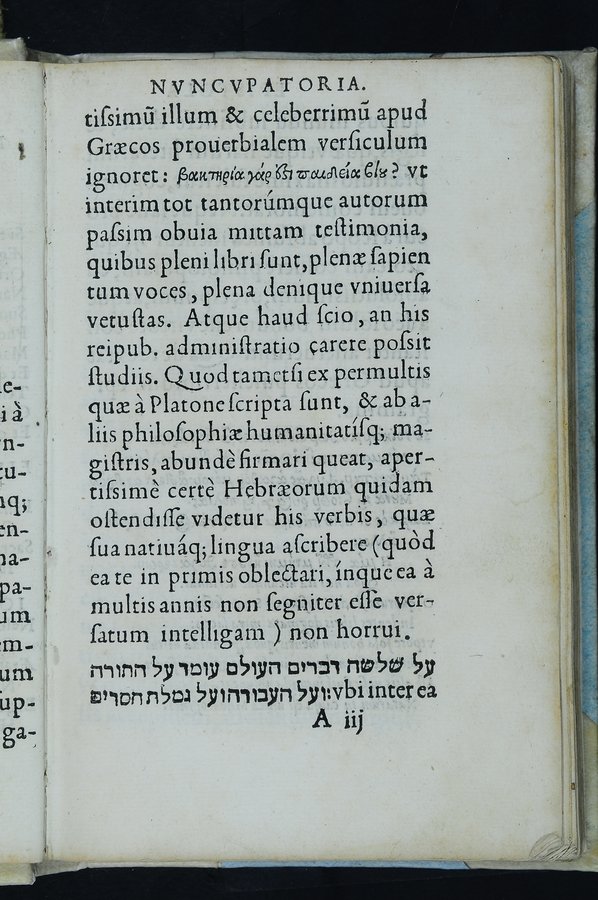 NVNCVPATORIA.
tiſsimũ illum & celeberrimũ apud
Græcos prouerbialem verſiculum
ignoret: βακτηρία γάρ ὅξι παιδεία βίου? vt
interim tot tantorúmque autorum
paſsim obuia mittam teſtimonia,
quibus pleni libri ſunt, plenæ ſapien
tum voces, plena denique vniuerſa
vetuſtas. Atque haud ſcio, an his
reipub. adminiſtratio carere poſsit
ſtudiis. Quod tametſi ex permultis
quæ à Platone ſcripta ſunt, & ab a-
liis philoſophiæ humanitatíſq; ma-
giſtris, abundè firmari queat, aper-
tiſsimè certè Hebræorum quidam
oſtendiſſe videtur his verbis, quæ
ſua natiuáq; lingua aſcribere (quòd
ea te in primis oblectari, ínque ea à
multis annis non ſegniter eſſe ver-
ſatum intelligam ) non horrui.
על שלשה דברים העולם עומד על התורה
ועל העבודה ועל גמלת חסדים: vbi inter ea
A iij
le-
i à
n-
tu-
nq;
en-
na-
pa-
um
em-
um
ſup-
ga-